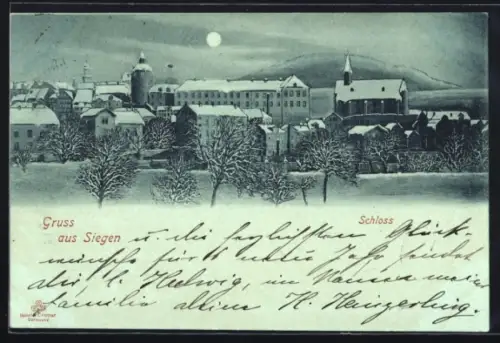 Gruss
aus Siegen
Schloss
u. die herzlichsten Glück-
wünsche für's neue Jahr sendet
dir, l. Hedwig, im Namen meiner
Familie allein H. Heinzerling.